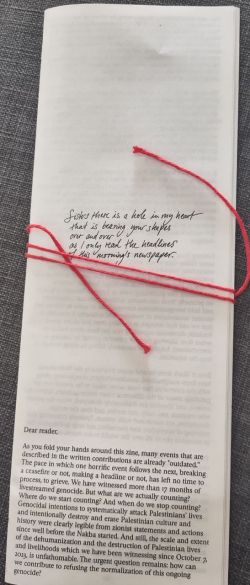 Sisters there is a hole in my heart
that is bearing your shapes
over and over
as I only read the headlines
of this morning's newspaper.
Dear reader,
As you fold your hands around this zine, many events that are
described in the written contributions are already "outdated."
The pace in which one horrific event follows the next, breaking
a ceasefire or not, making a headline or not, has left no time to
process, to grieve. We have witnessed more than 17 months of
livestreamed genocide. But what are we actually counting?
Where do we start counting? And when do we stop counting?
Genocidal intentions to systematically attack Palestinians' lives
and intentionally destroy and erase Palestinian culture and
history were clearly legible from zionist statements and actions
since well before the Nakba started. And still, the scale and extent
of the dehumanization and the destruction of Palestinian lives
and livelihoods which we have been witnessing since October 7,
2023, is unfathomable. The urgent question remains: how can
we contribute to refusing the normalization of this ongoing
genocide?